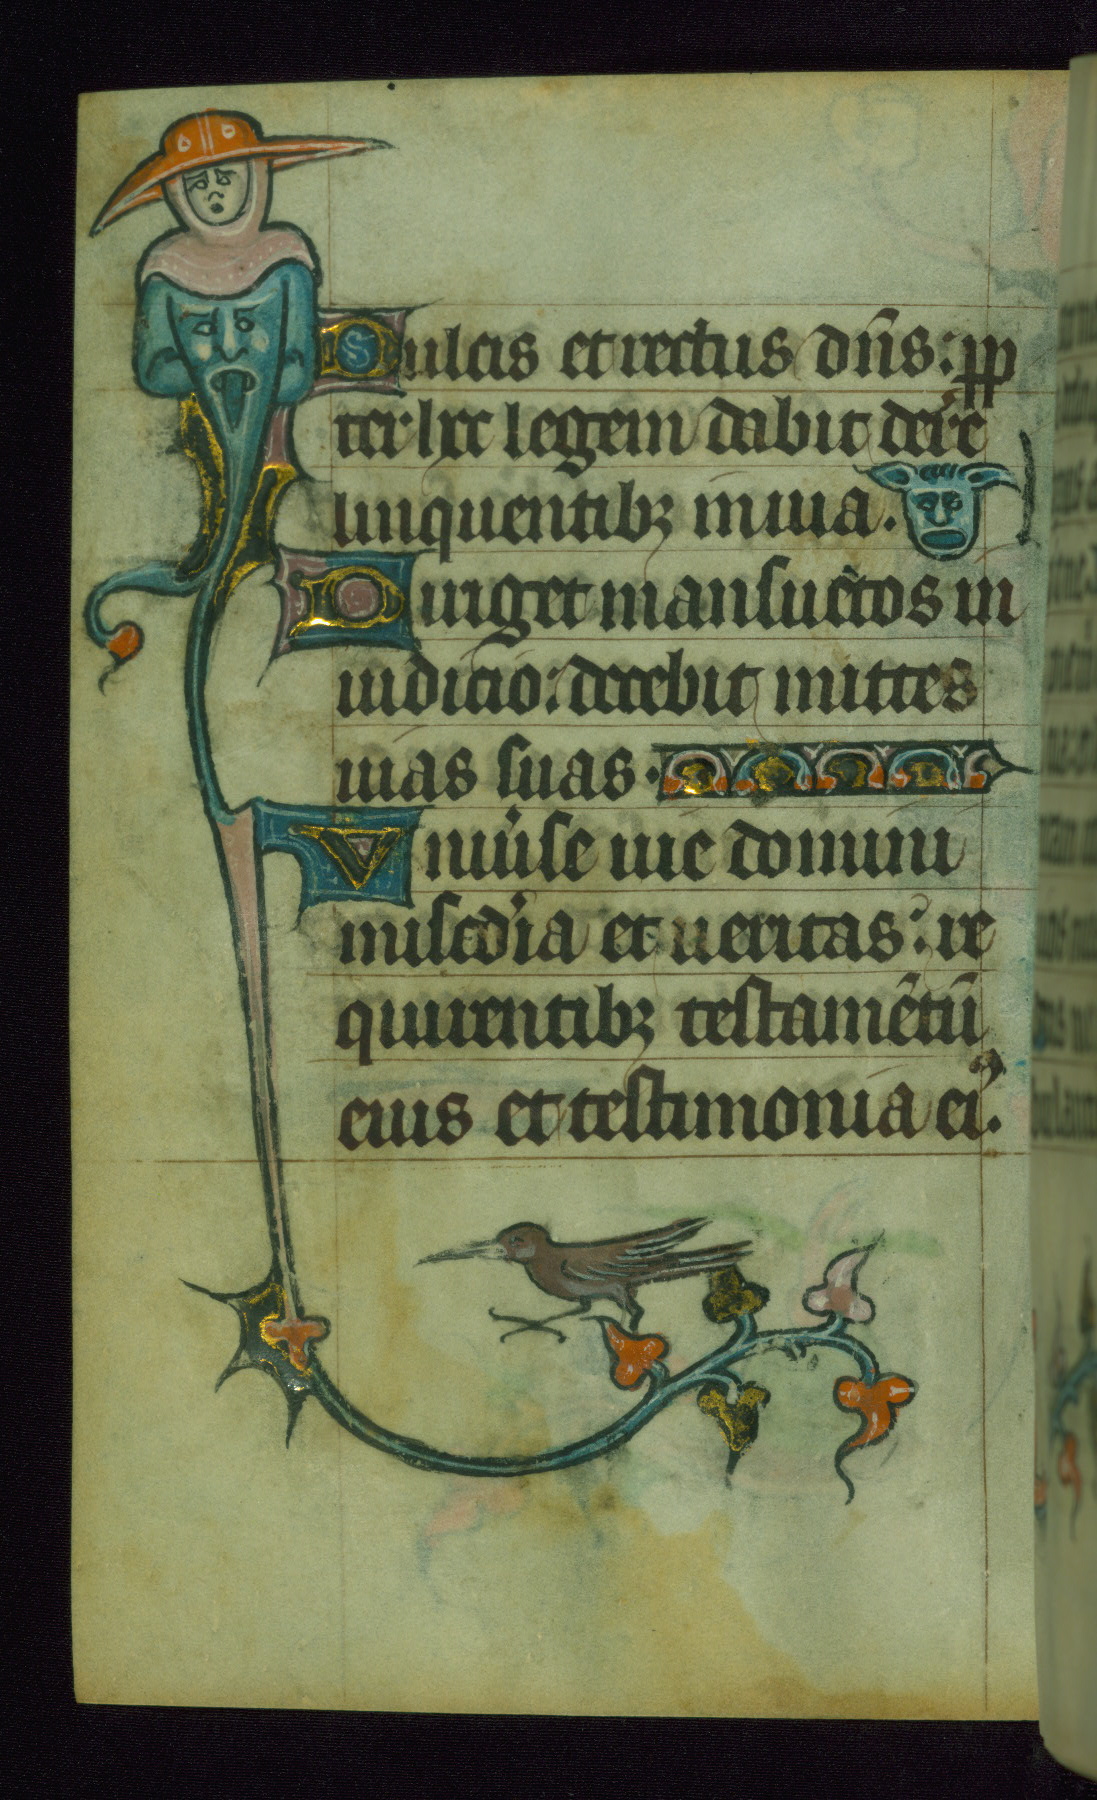 Dulcis et rectus dn̄s: ꝓp
ter hoc legem dabit dere
linquentibꝫ in uia.
Diriget mansuētos in
iudicio: docebit mittes
uias suas.
Vniūse uie domini
misc̄dia et ueritas: re
quirentibꝫ testamētū
eius et testimonia eiꝰ.